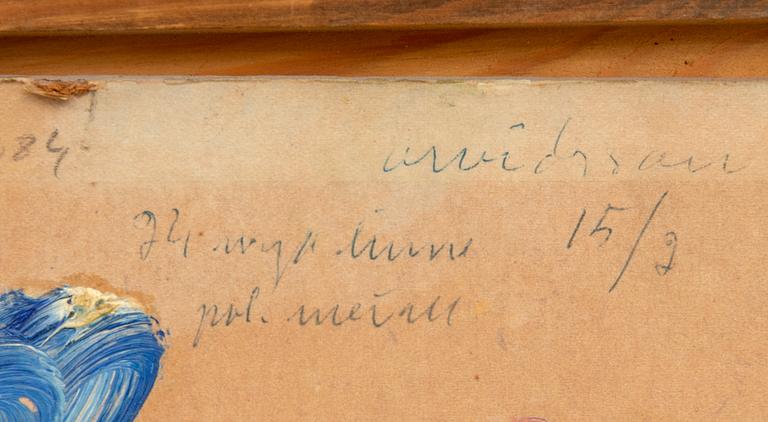 84 arvidsson
24 linne 15/3
pol. metall